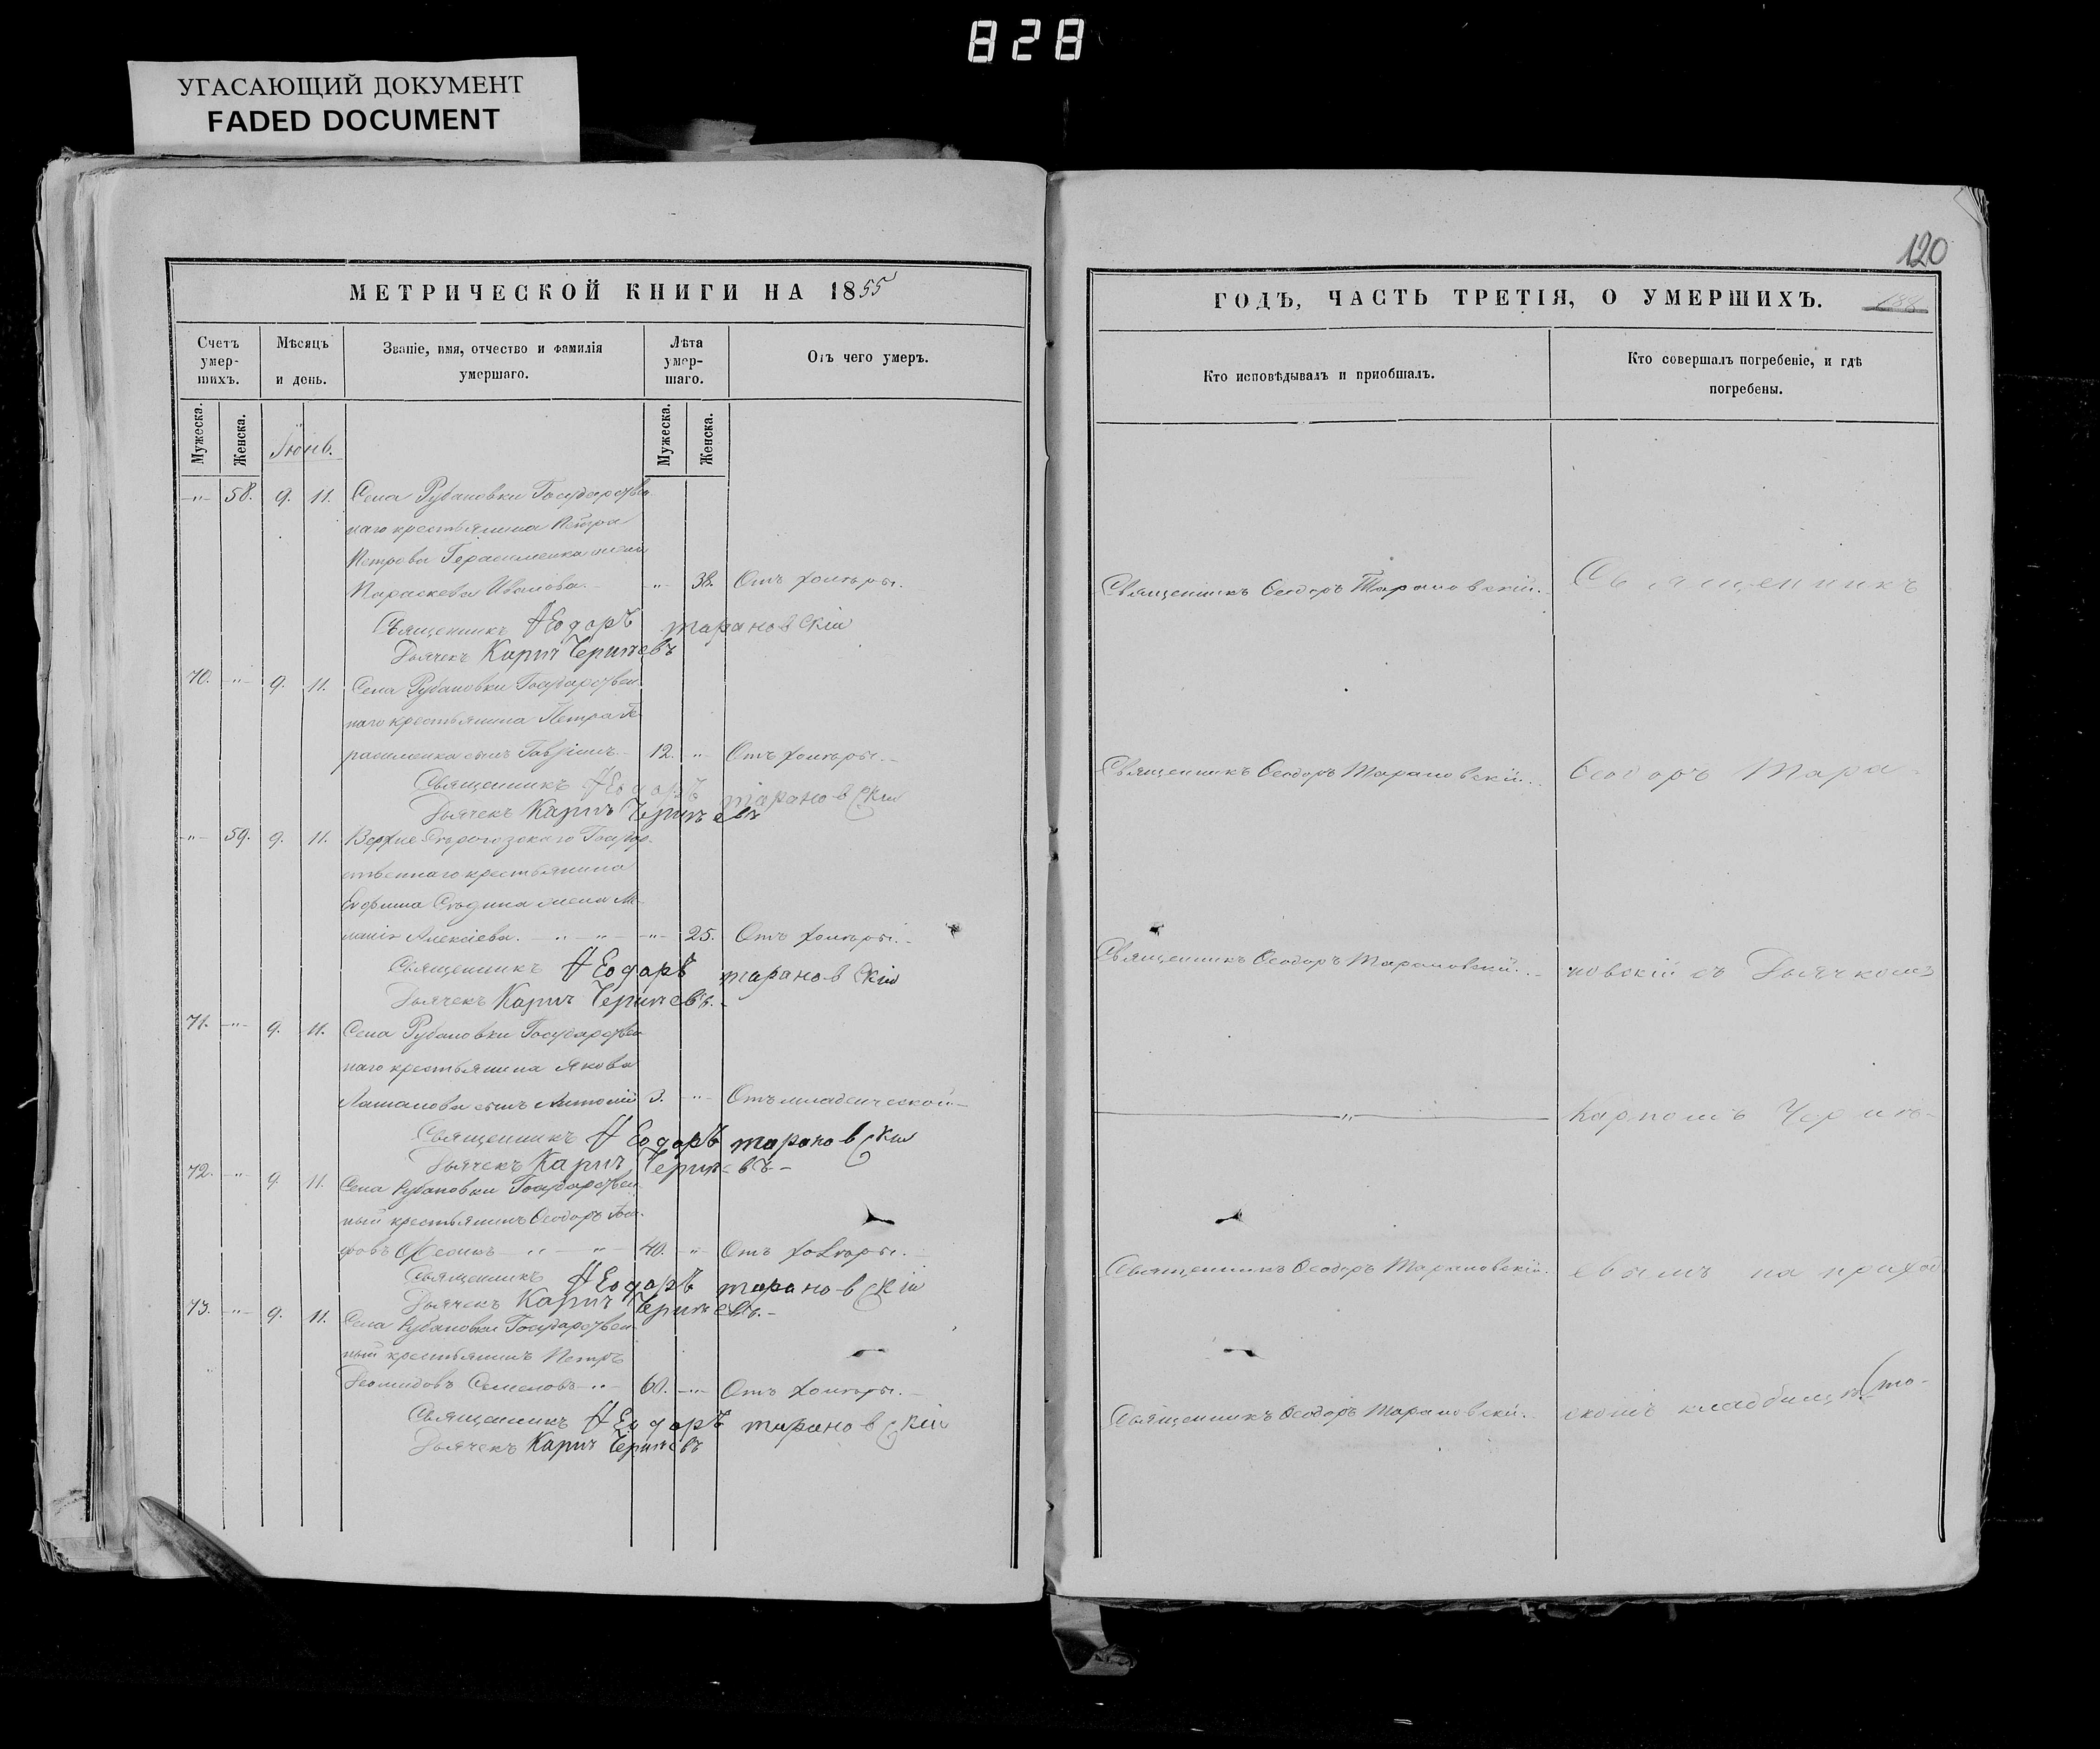 828
УГАСАЮЩИЙ ДОКУМЕНТ
FADED DOCUMENT
МЕТРИЧЕСКОЙ КНИГИ НА 1855
Счетъ умер-шихъ.
Мѣсяцъ и день.
Званіе, имя, отчество и фамилія умершаго.
Лѣта умер-шаго.
Отъ чего умеръ.
Мужеска.
Женска.
Іюнь.
Мужеска.
Женска.
-"- 58. 9. 11. Села Рубановки Государствен
наго крестьянина Петра
Петрова Герасименка жена
Параскева Иванова. -"- 38. Отъ холеры.
Священникъ Ѳеодоръ Тарановскій
Дьячекъ Карпъ Черинъевъ
70. -"- 9. 11. Села Рубановки Государствен
наго крестьянина Петра Ге
расименка сынъ Гавріилъ. 12. " Отъ холеры.
Священникъ Ѳеодоръ Тарановскій
Дьячекъ Карпъ Черинъевъ
-"- 59. 9. 11. Верхне-Сѣрогозскаго Государ
ственнаго крестьянина
жена Ме
ланія Алексіева. -"- 25. Отъ холеры.
Священникъ Ѳеодоръ Тарановскій
Дьячекъ Карпъ Черинъевъ.
71. -"- 9. 11. Села Рубановки Государствен
наго крестьянина Якова
сынъ Антоній 3. -"- Отъ младенческой
Священникъ Ѳеодоръ Тарановскій
Дьячекъ Карпъ Черинъевъ
72. -"- 9. 11. Села Рубановки Государствен
ный крестьянинъ Ѳеодоръ
40. " Отъ холеры.
Священникъ Ѳеодоръ Тарановскій
Дьячекъ Карпъ Черинъевъ.
73. -"- 9. 11. Села Рубановки Государствен
ный крестьянинъ Петръ
Семеновъ 60. -"- Отъ холеры.
Священникъ Ѳеодоръ Тарановскій
Дьячекъ Карпъ Черинъевъ
120
ГОДЪ, ЧАСТЬ ТРЕТІЯ, О УМЕРШИХЪ.
Кто исповѣдывалъ и приобщалъ.
Кто совершалъ погребеніе, и гдѣ
погребены.
Священникъ Ѳеодоръ Тарановскій. Священникъ
Священникъ Ѳеодоръ Тарановскій. Ѳеодоръ Тара
Священникъ Ѳеодоръ Тарановскій. новскій съ Дьячкомъ
" Карпомъ Черинъ-
Священникъ Ѳеодоръ Тарановскій. евымъ на приход
Священникъ Ѳеодоръ Тарановскій. скомъ кладбищѣ